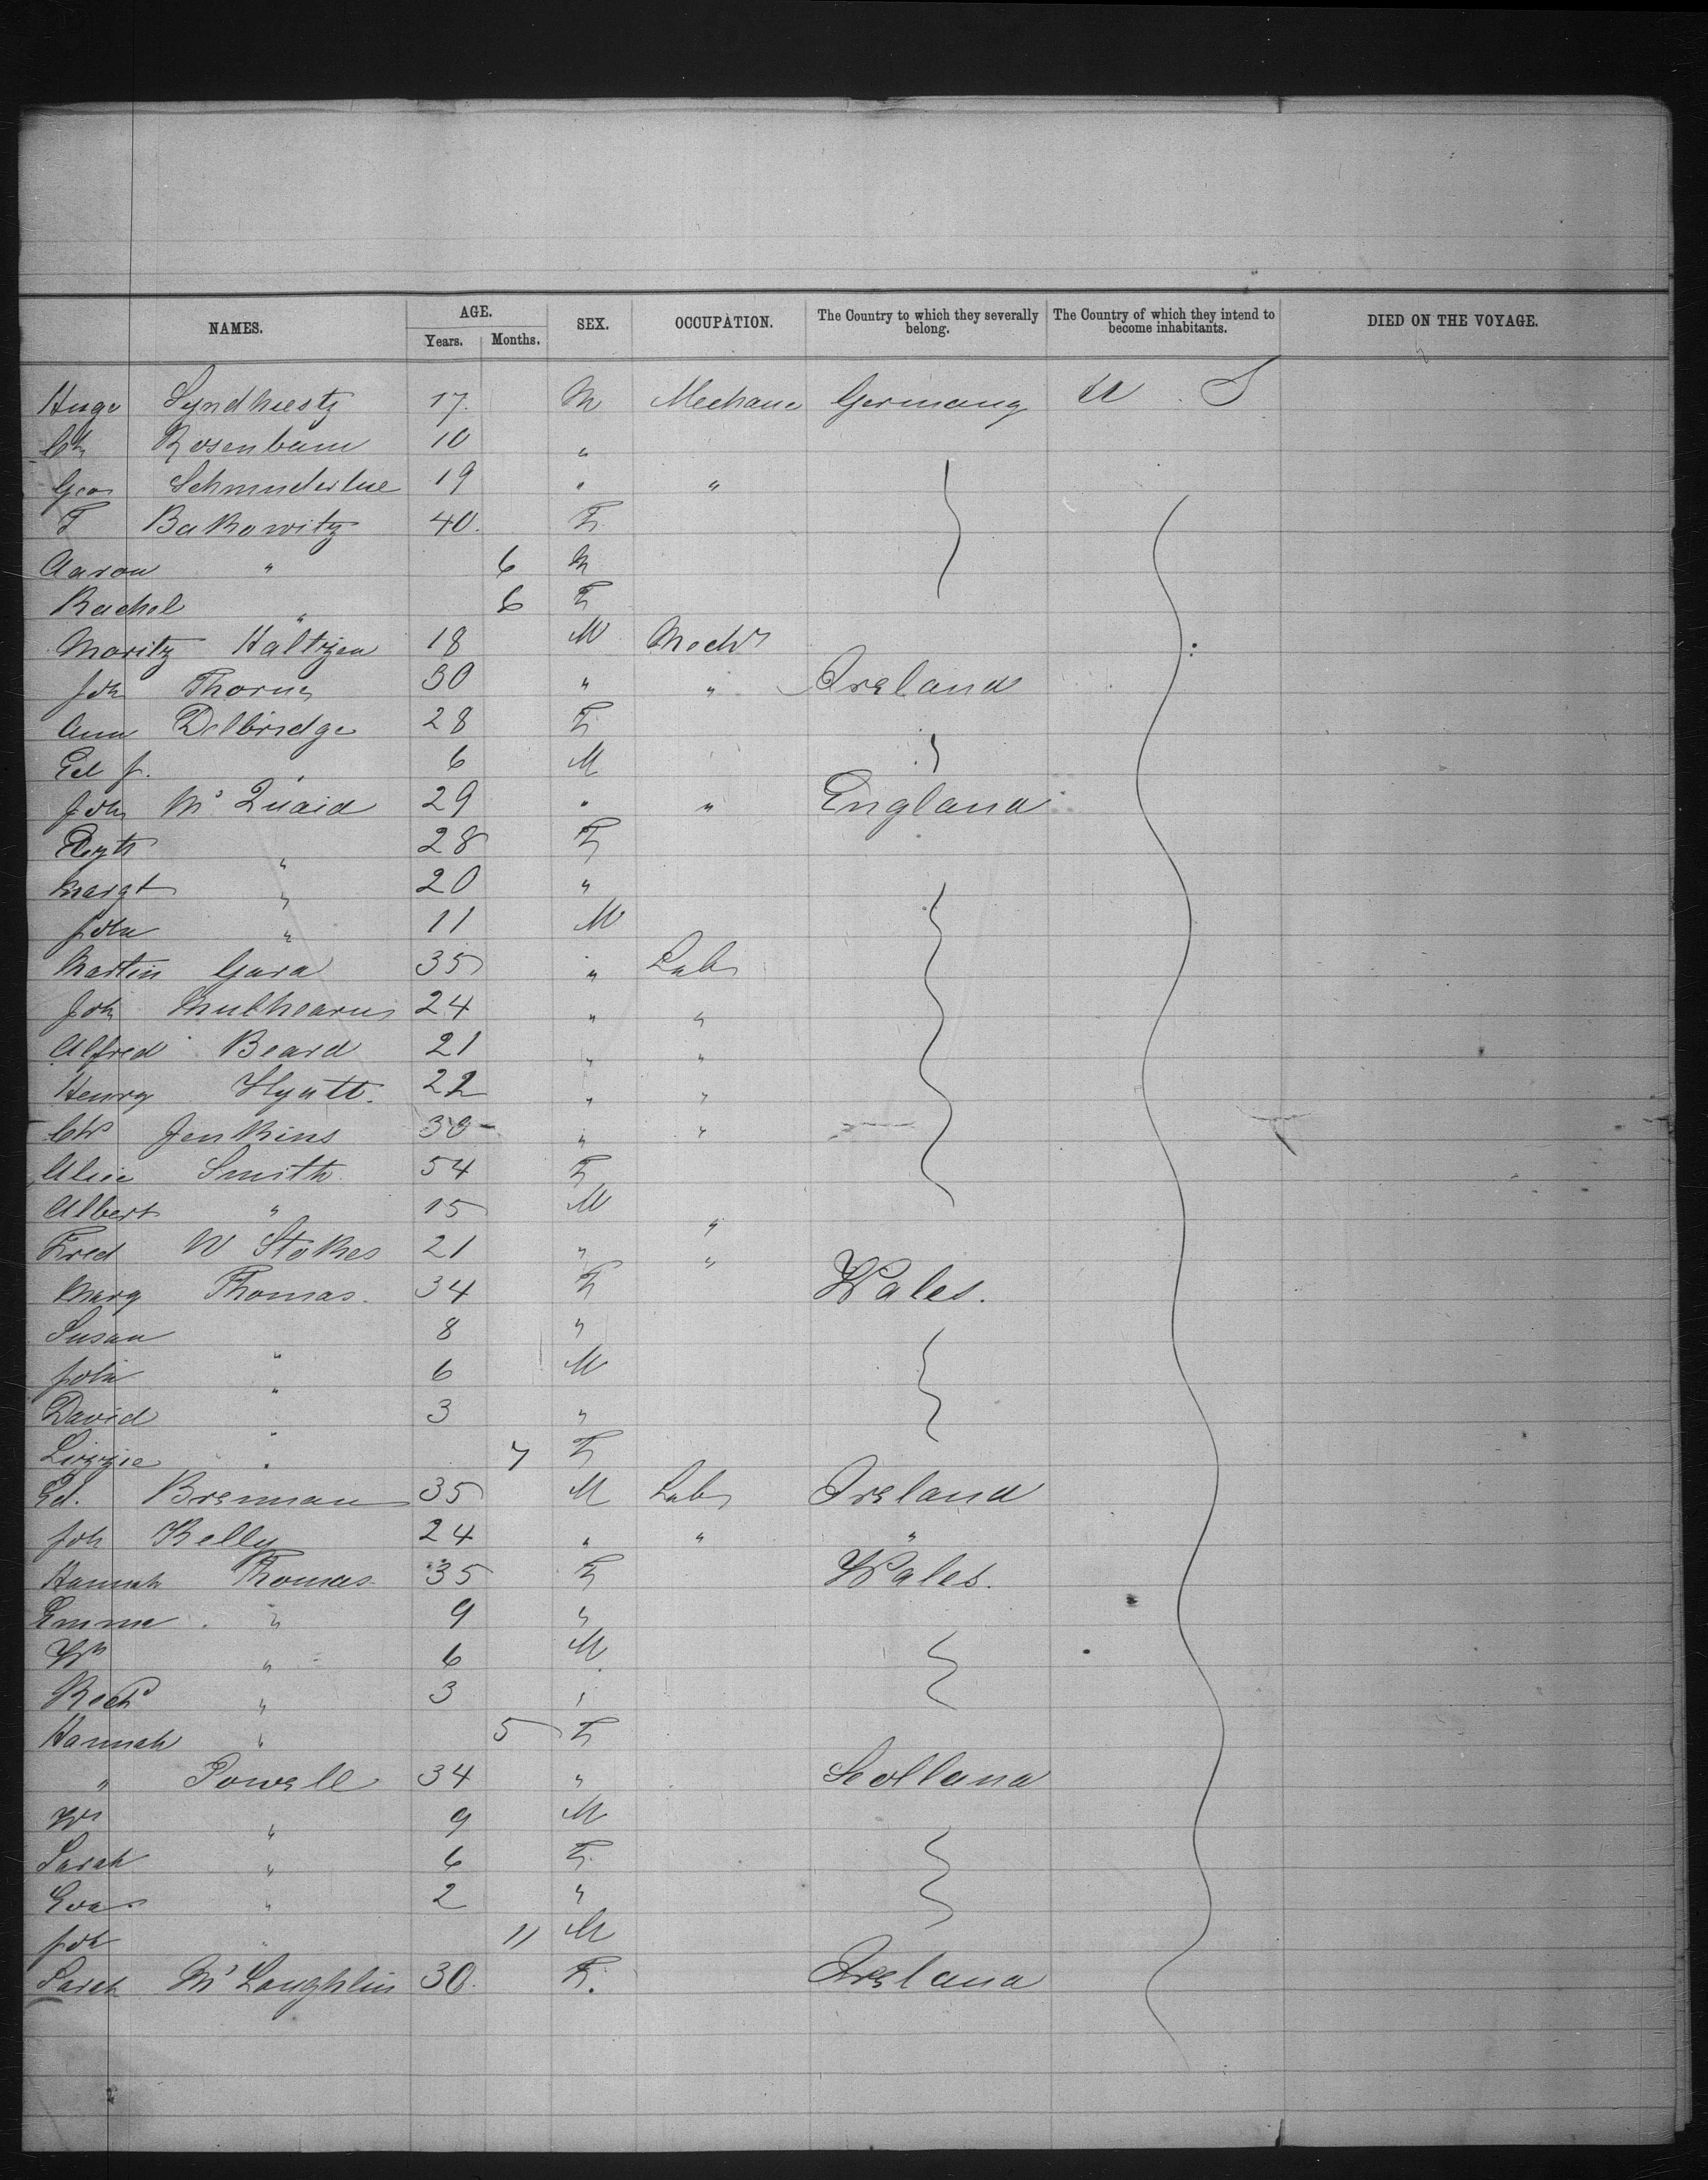 NAMES. AGE. SEX. OCCUPATION. The Country to which they severally belong. The Country of which they intend to become inhabitants. DIED ON THE VOYAGE.
Years. Months.
Hugo 17 M Mechanic Germany U. S
Ch Rosenbaum 10 "
Geo 19 " "
F Bakowitz 40. F
Aaron " 6 M
Rachel " 6 F
Moritz Haltzen 18 M Mech
Joh Thorne 30 " " Ireland
Ann Delbridge 28 F
Ed J. " 6 M
John Mc Quaid 29 " " England
" 28 F
Margt " 20 "
John " 11 M
Martin Gara 35 " Lab
Joh Mulhearn 24 " "
Alfred Beard 21 " "
Henry Hyatt. 22 " "
Chs Jenkins 30 " "
Alice Smith. 54 F
Albert " 15 M "
Fred W Stokes 21 " "
Mary Thomas. 34 F Wales.
Susan " 8 "
John " 6 M
David " 3 "
Lizzie " 7 F
Ed. Brennan 35 M Lab Ireland
Joh Kelly 24 " " "
Hannah Thomas 35 F Wales.
Emma " 9 "
Wm " 6 M
Richd " 3 "
Hannah " 5 F
" Powell 34 " Scotland
Wm " 9 M
Sarah " 6 F.
Eva " 2 "
Joh " 11 M
Sarah Mc Loughlin 30. F. Ireland